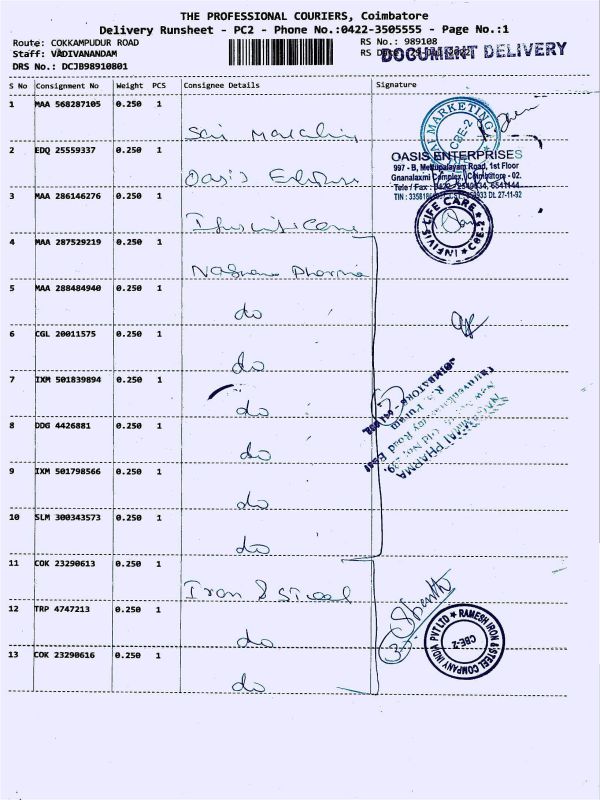 THE PROFESSIONAL COURIERS, Coimbatore
Delivery Runsheet - PC2 - Phone No.:0422-3505555 - Page No.:1
Route: COKKAMPUDUR ROAD
RS No.: 989108
Staff: VADIVANANDAM
RS
DOCUMENT DELIVERY
DRS No.: DCJB98910801
S No Consignment No Weight PCS Consignee Details Signature
1 MAA 568287105 0.250 1
Sai Marketing
MARKETING
CBE-2
2 EDQ 25559337 0.250 1
Oasis
OASIS ENTERPRISES
997 - B, Mettupalayam Road, 1st Floor
Gnanalaxmi Complex, Coimbatore - 02.
Tele / Fax :
DT. 27-11-92
3 MAA 286146276 0.250 1
INFIVIS LIFE CARE
CBE-2
4 MAA 287529219 0.250 1
Pharma
5 MAA 288484940 0.250 1
do
6 CGL 20011575 0.250 1
do
7 IXM 501839894 0.250 1
do
PHARMA
COIMBATORE
8 DDG 4426881 0.250 1
do
9 IXM 501798566 0.250 1
do
10 SLM 300343573 0.250 1
do
11 COK 23290613 0.250 1
Iron & Steel
12 TRP 4747213 0.250 1
do
RAMESH IRON & STEEL COMPANY INDIA PVT LTD
CBE-2
13 COK 23290616 0.250 1
do